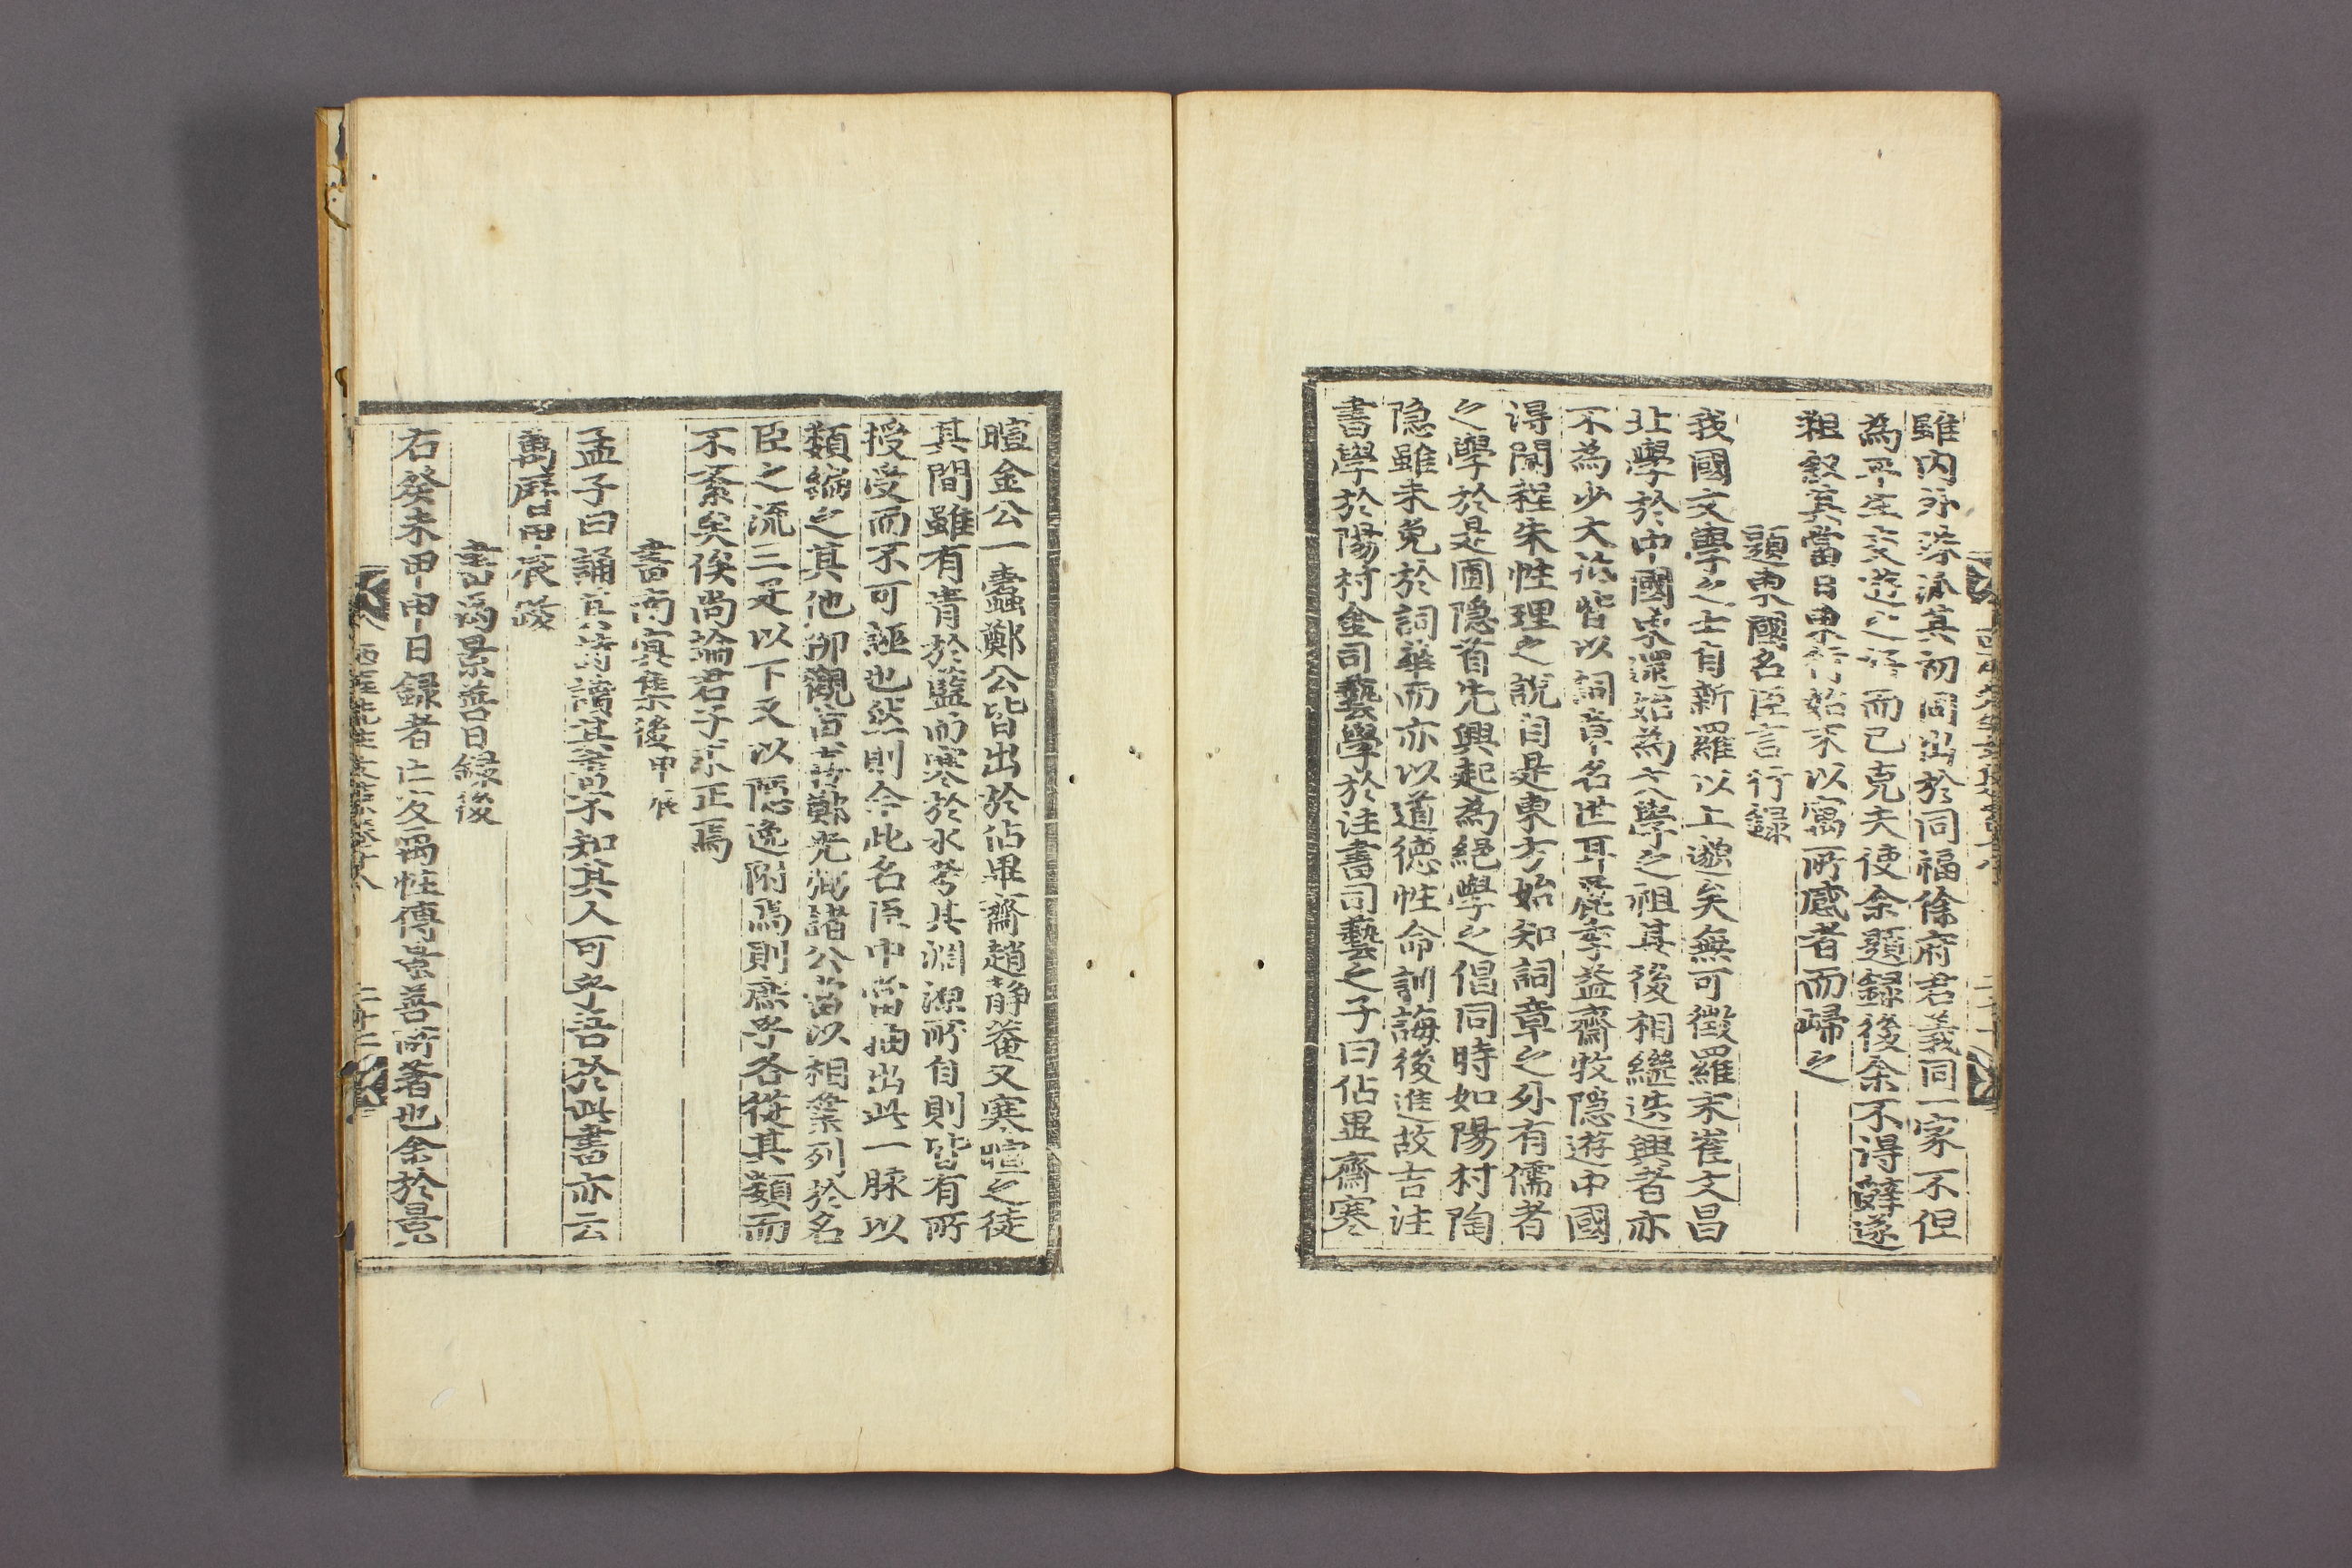 雖內外婚派其初同出於同福徐府君義同一家不但
為平生交遊之好而已克夫使余題錄後余不得辭遂
粗叙其當日事行始末以寓所感者而歸之
題東國名臣言行録
我國文學之士自新羅以上邈矣無可徵羅末崔文昌
北學於中國東還始為文學之祖其後相繼迭興者亦
不為少大抵皆以詞章名世耳麗季益齋牧隐遊中國
得聞程朱性理之說自是東方始知詞章之外有儒者
之學於是圃隐首先興起為絕學之倡同時如陽村陶
隐雖未免於詞華而亦以道德性命訓誨後進故吉注
書學於陽村金司藝學於注書司藝之子曰佔畢齋寒
暄金公一蠹鄭公皆出於佔畢齋趙静菴又寒暄之徒
其間雖有青於藍而寒於水考其淵源所自則皆有所
授受而不可誣也然則今此名臣中當抽出此一脉以
類編之其他卿觀百黃鄭光弼諸公當以相業列於名
臣之流三足以下又以隱逸附焉則庶乎各從其類而
不紊矣俟尚論君子求正焉
書南冥集後甲辰
孟子曰誦其詩讀其書不知其人可乎吾於此書亦云
萬曆甲辰跋
書禹景善日録後
右癸未甲申日録者亡友禹性傳景善所著也余於景
西厓先生文集卷之十八
二十二